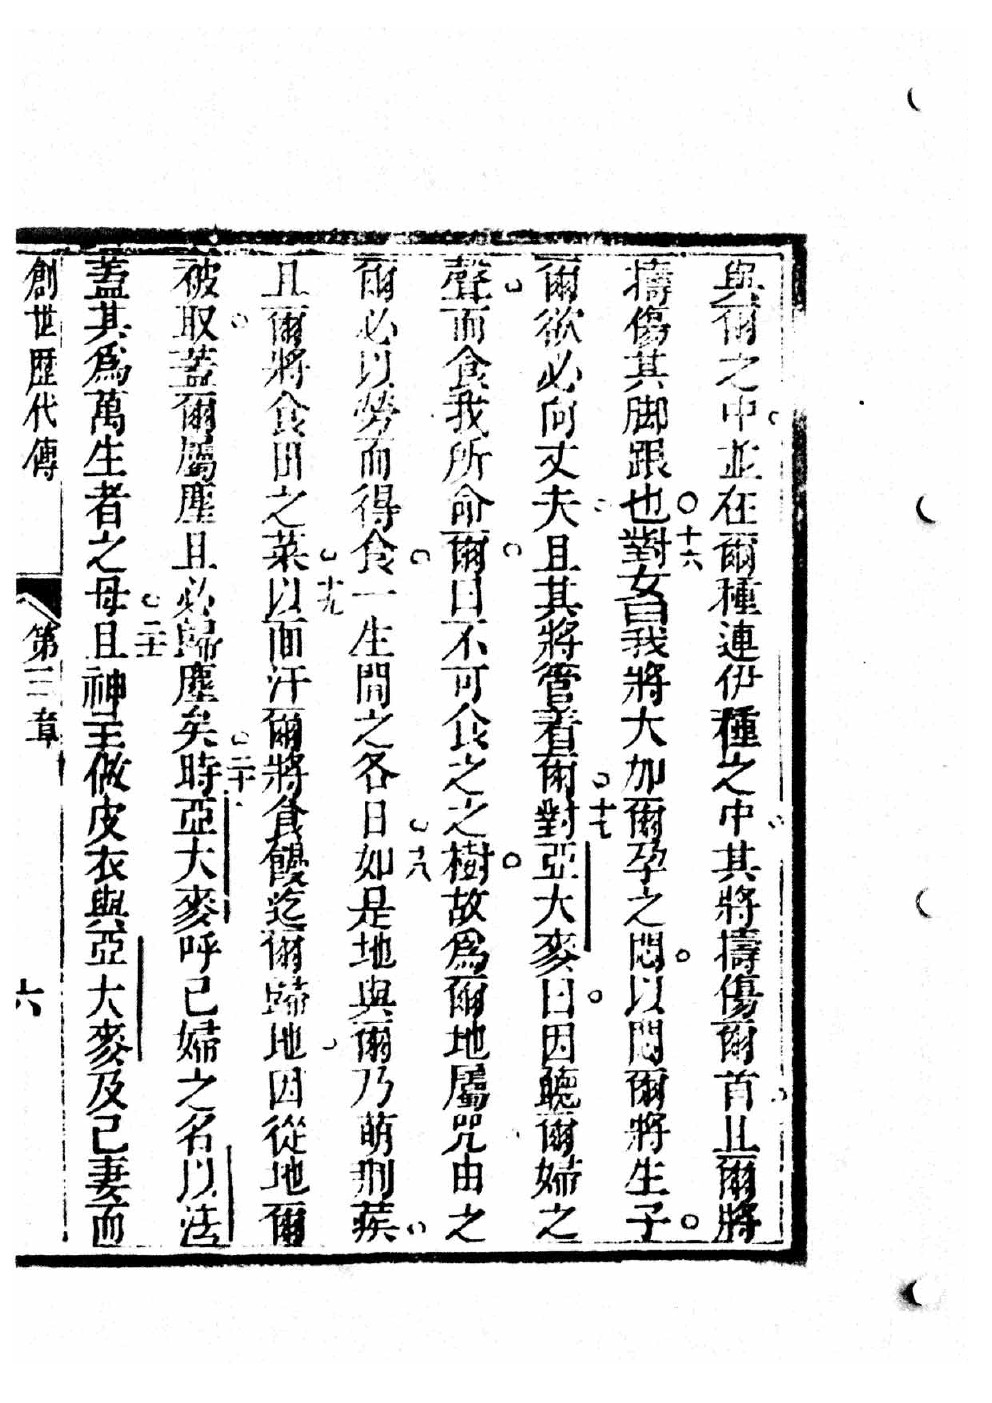 與爾之中並在爾種連伊種之中其將擣傷爾首且爾將
擣傷其脚跟也○十六對女曰我將大加爾孕之悶以悶爾將生子
爾欲必向丈夫且其將管着爾○十七對亞大麥曰因聽爾婦之
聲而食我所命爾曰不可食之之樹故爲爾地屬咒由之
爾必以勞而得食一生間之各日十八如是地與爾乃萌荆蒺
且爾將食田之菜十九以面汗爾將食饅迄爾歸地因從地爾
被取蓋爾屬塵且必歸塵矣二十時亞大麥呼己婦之名以法
蓋其爲萬生者之母二十一且神主做皮衣與亞大麥及己妻而
創世歷代傳
第三章
六